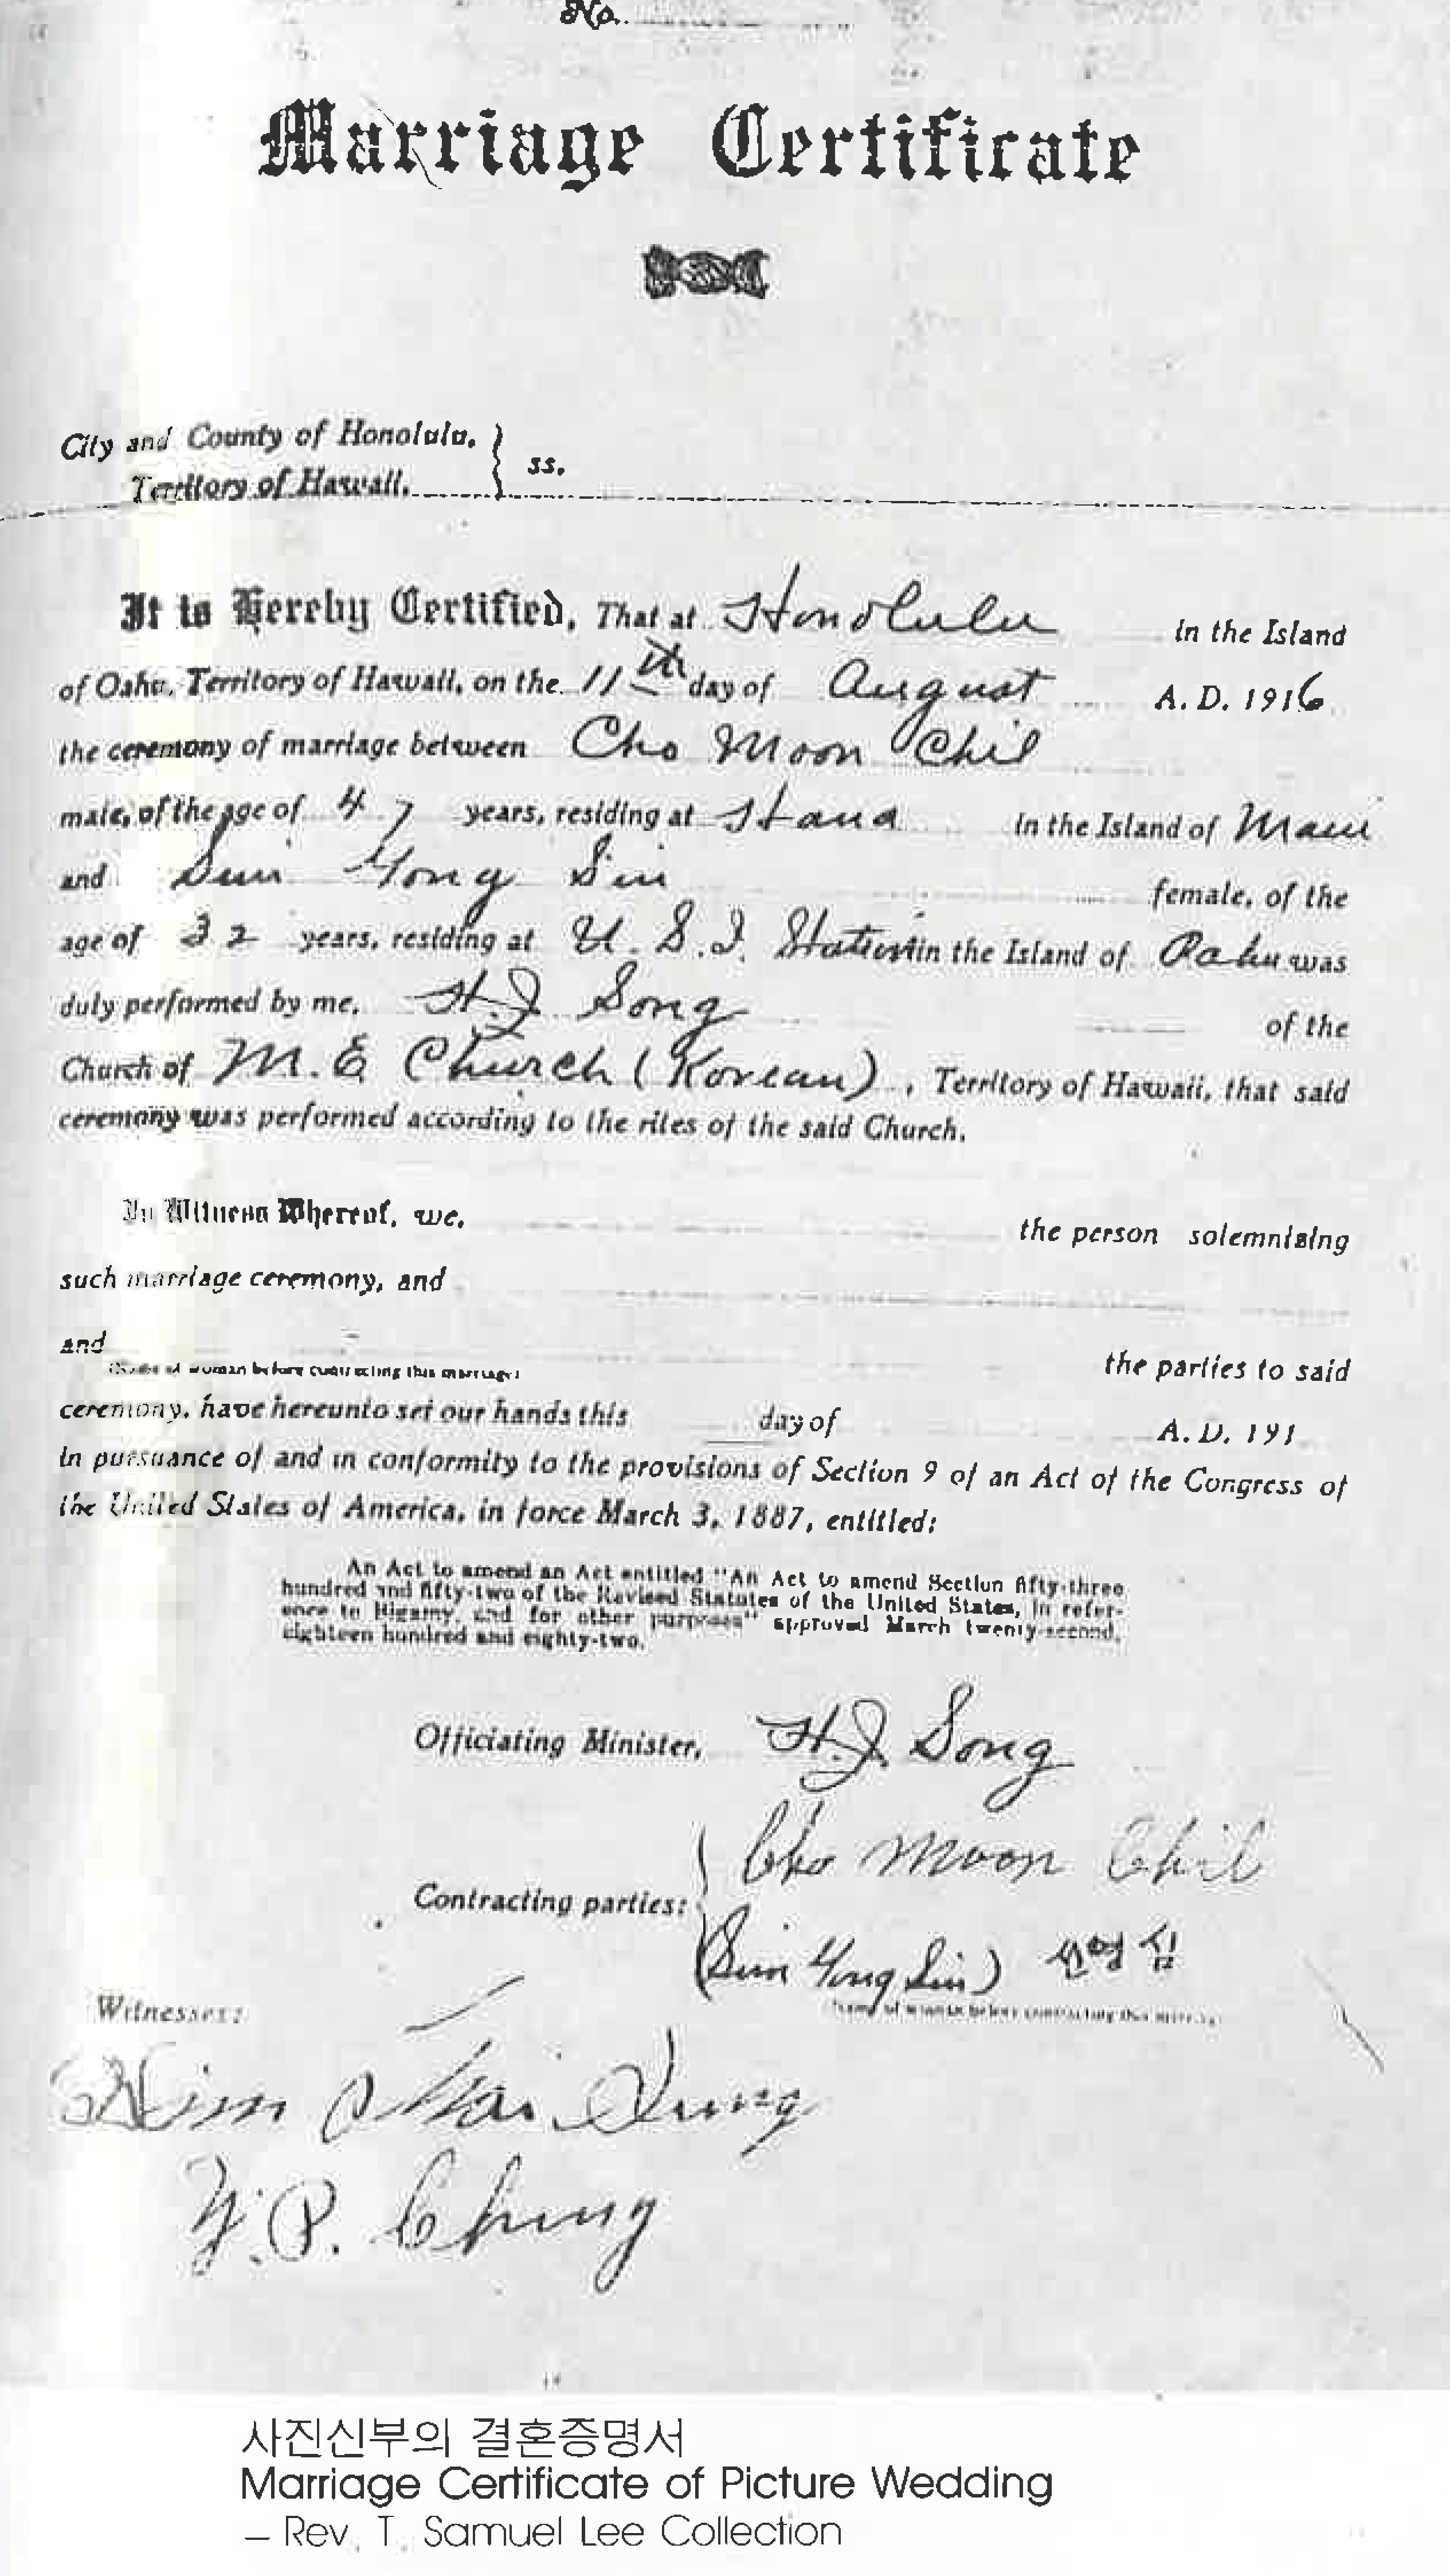 No.
Marriage Certificate
City and County of Honolulu,
Territory of Hawaii.
} ss.
It is Hereby Certified, That at Honolulu in the Island
of Oahu, Territory of Hawaii, on the 11th day of August A. D. 1916
the ceremony of marriage between Cho Moon Chil
male, of the age of 47 years, residing at Hana in the Island of Maui
and Sun Yong Sin female, of the
age of 32 years, residing at U. S. I. Station in the Island of Oahu was
duly performed by me, H. J. Song of the
Church of M. E Church (Korean), Territory of Hawaii, that said
ceremony was performed according to the rites of the said Church.
In Witness Whereof, we, the person solemnising
such marriage ceremony, and
and
(Name of woman before contracting this marriage) the parties to said
ceremony, have hereunto set our hands this day of A. D. 191
in pursuance of and in conformity to the provisions of Section 9 of an Act of the Congress of
the United States of America, in force March 3, 1887, entitled:
An Act to amend an Act entitled "An Act to amend Section fifty-three
hundred and fifty-two of the Revised Statutes of the United States, in refer-
ence to Bigamy, and for other purposes" approved March twenty-second,
eighteen hundred and eighty-two.
Officiating Minister, H. J. Song
Cho Moon Chil
Contracting parties:
(Sun Yong Sin)
(Name of woman before contracting this marriage)
Witnesses:
Y. P. Chung
사진신부의 결혼증명서
Marriage Certificate of Picture Wedding
– Rev. T. Samuel Lee Collection